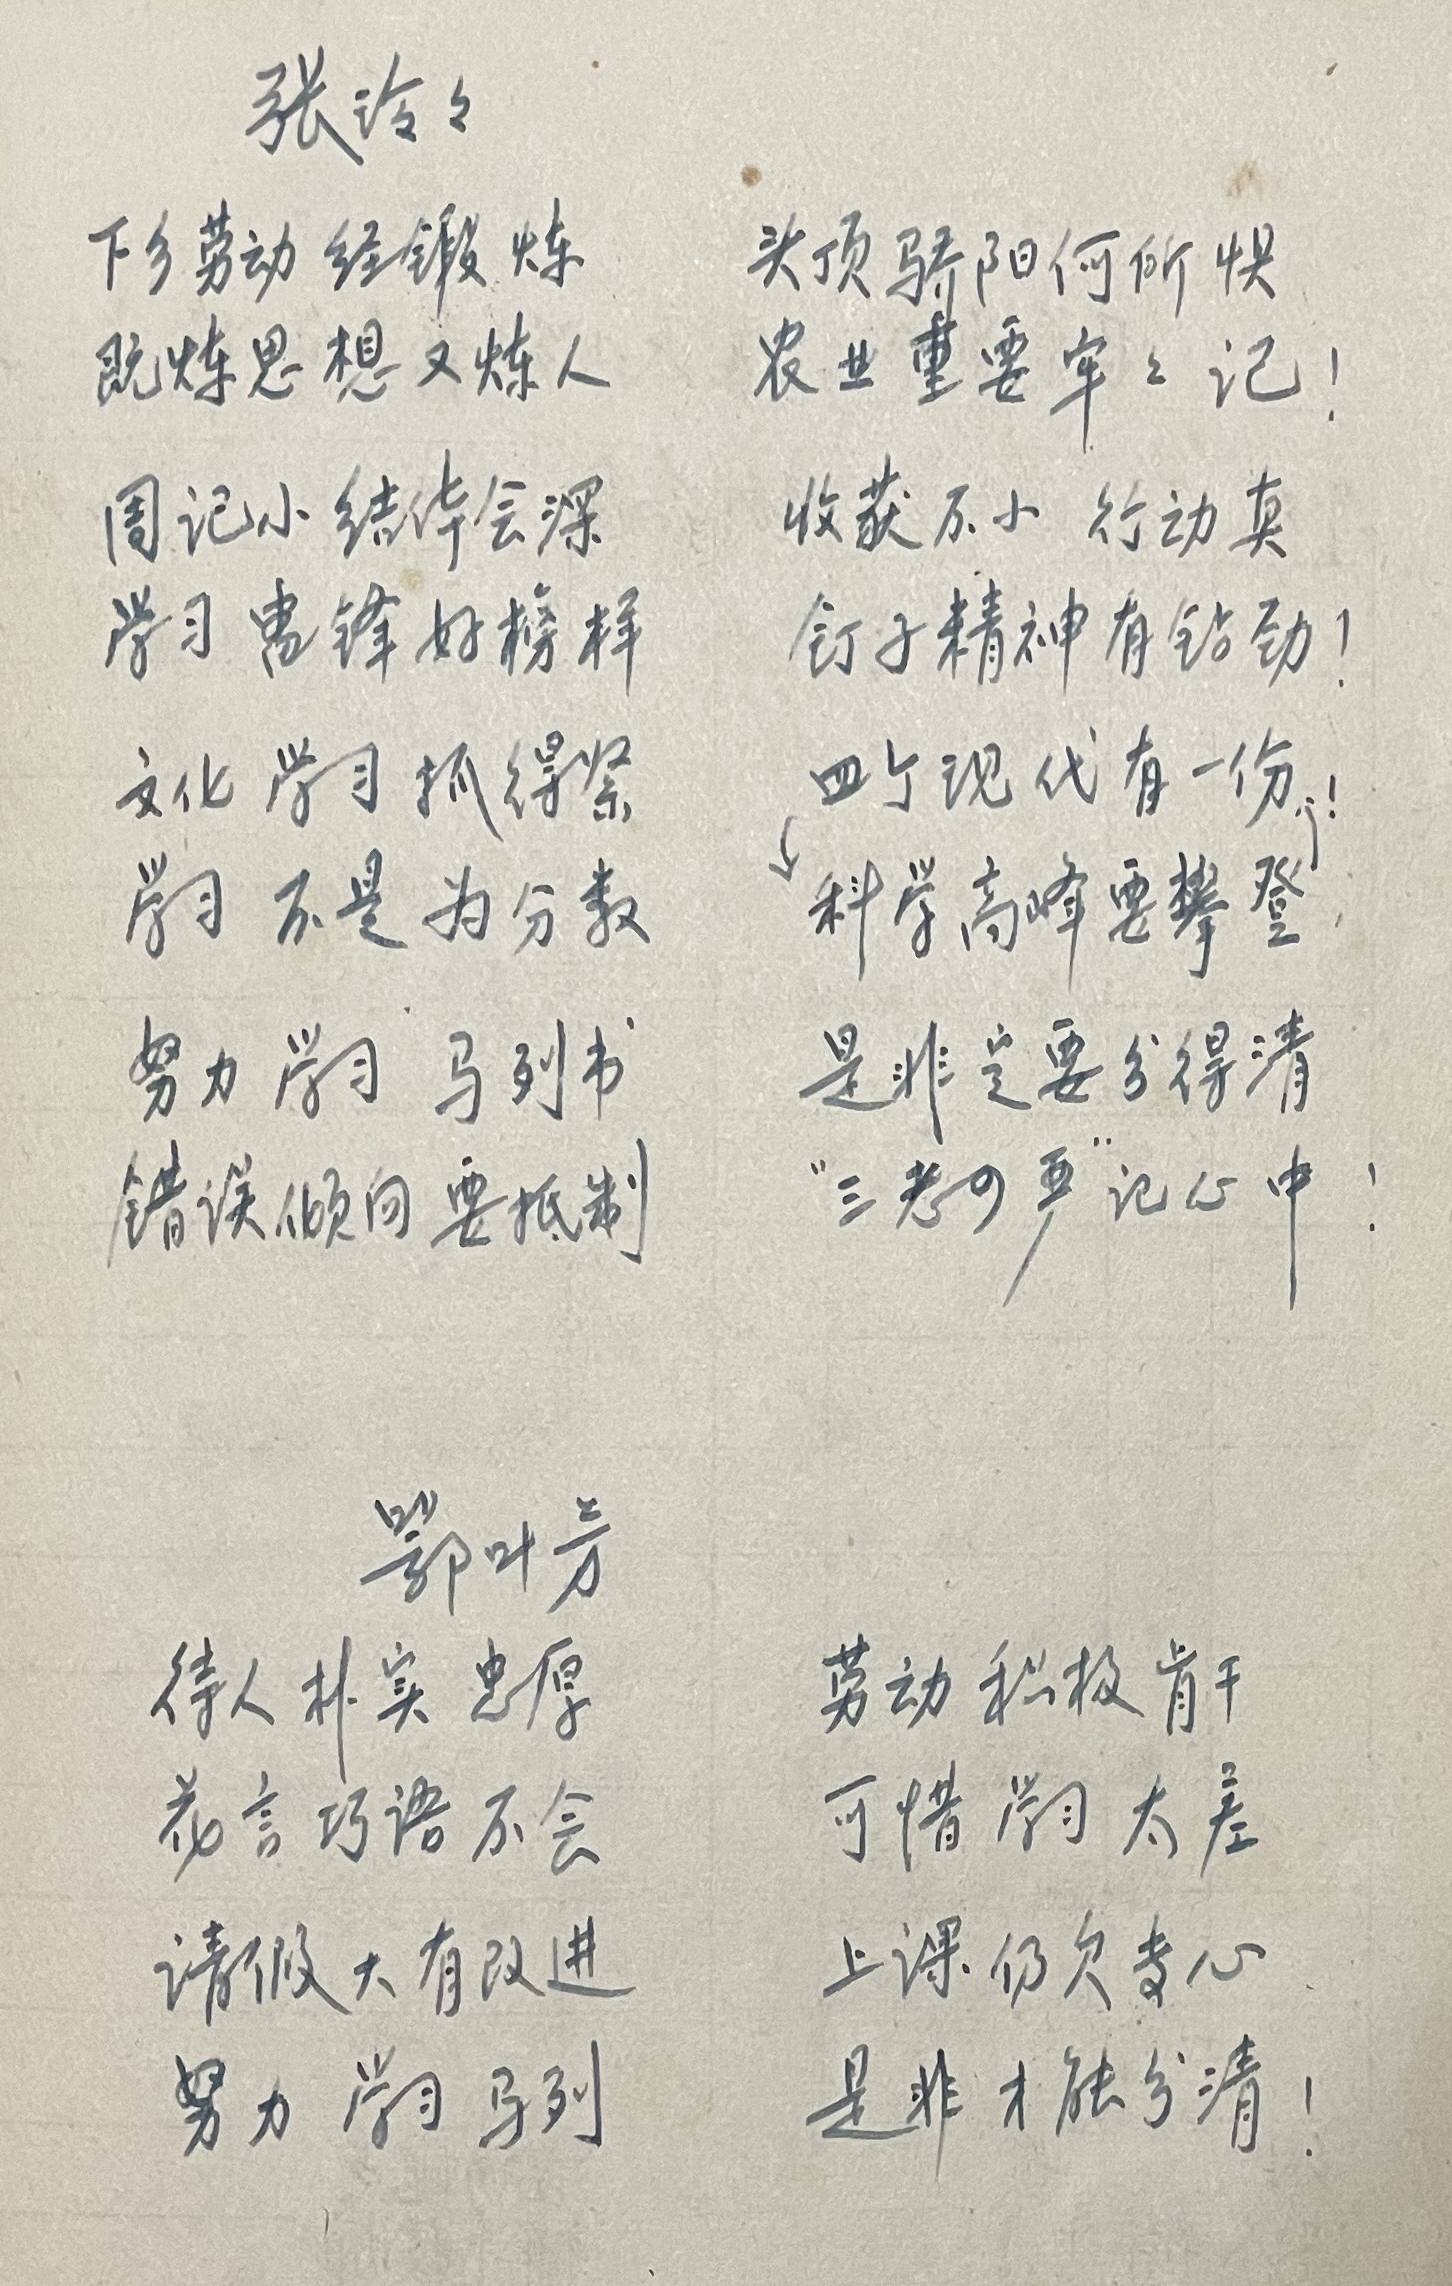 张泠々
下乡劳动经锻炼 头顶骄阳何所惧
既炼思想又炼人 农业重要牢々记！
周记小结体会深 收获不小行动真
学习雷锋好榜样 钉子精神有钻劲！
文化学习抓得紧 四个现代有一份！
学习不是为分数 科学高峰要攀登，
努力学习马列书 是非定要分得清
错误倾向要抵制 “三老四严”记心中！
鄂叶芳
待人朴实忠厚 劳动积极肯干
花言巧语不会 可惜学习太差
请假大有改进 上课仍欠专心
努力学习马列 是非才能分清！